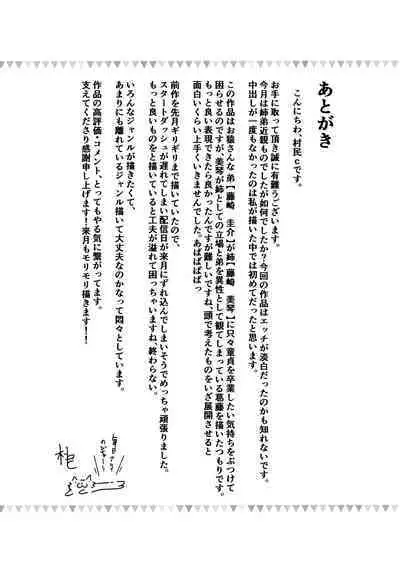 あとがき
こんにちわ、村民cです。
お手に取って頂き誠に有難うございます。
今月は姉弟近親ものでしたが如何でしたか?今回の作品はエッチが淡白だったのかも知れないです。
中出しが一度もなかったのは私が描いた中では初めてだったと思います。
この作品はお猿さんな弟【藤崎 圭介】が姉【藤崎 美琴】に只々童貞を卒業したい気持ちをぶつけて
困らせるのですが、美琴が姉としての立場と弟を異性として観てしまっている葛藤を描いたつもりです。
もっと良い表現できたら良かったんですが難しいですね、頭で考えたものをいざ展開させると
面白いくらい上手くいきませんでした。あばばばばっ
前作を先月ギリギリまで描いていたので、
スタートダッシュが遅れてしまい配信日が来月にずれ込んでしまいそうでめっちゃ頑張りました。
もっと良いものをと描いていると工夫が溢れて困っちゃいますね、終わらない。
いろんなジャンルが描きたくて、
あまりにも離れているジャンル描いて大丈夫なのかなって悶々としています。
作品の高評価・コメント、とってもやる気に繋がってます。
支えてくださり感謝申し上げます!来月もモリモリ描きます!!